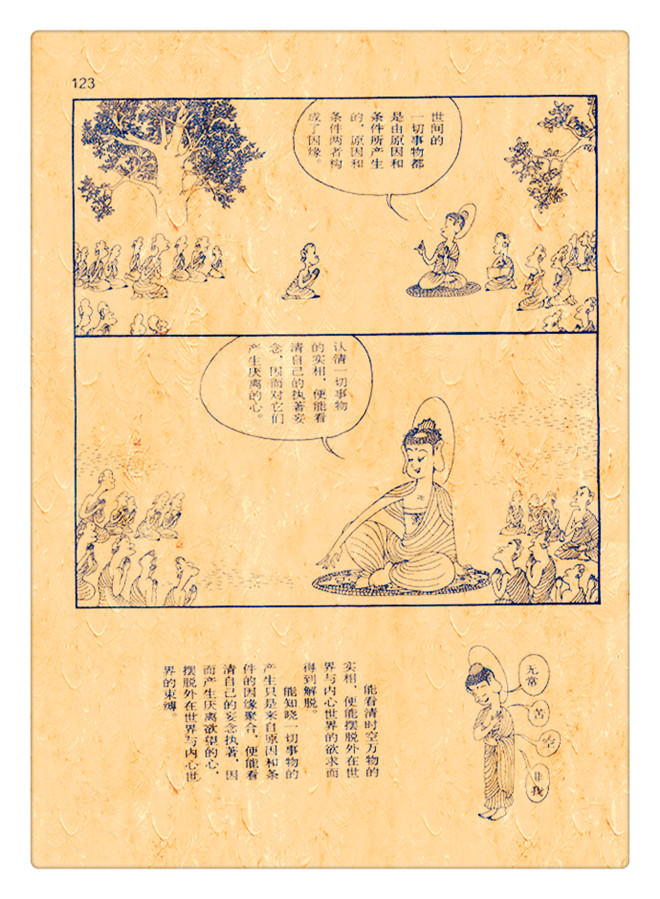 123
世间的
一切事物都
是由原因和
条件所产生
的，原因和
条件两者构
成了因缘。
认清一切事物
的实相，便能看
清自己的执著妄
念，因而对它们
产生厌离的心。
无常
苦
空
非我
能看清时空万物的
实相，便能摆脱外在世
界与内心世界的欲求而
得到解脱。
能知晓一切事物的
产生只是来自原因和条
件的因缘聚合，便能看
清自己的妄念执著，因
而产生厌离欲望的心，
摆脱外在世界与内心世
界的束缚。